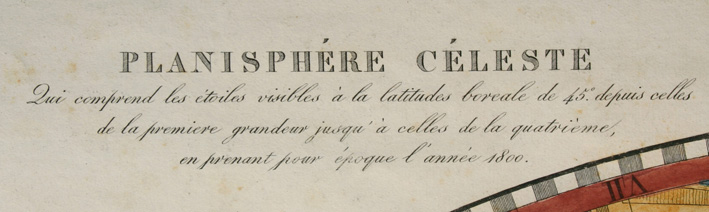 PLANISPHÉRE CÉLESTE
Qui comprend les étoiles visibles à la latitudes boreale de 45.° depuis celles
de la premiere grandeur jusqu'à celles de la quatrième,
en prenant pour époque l'année 1800.
VII